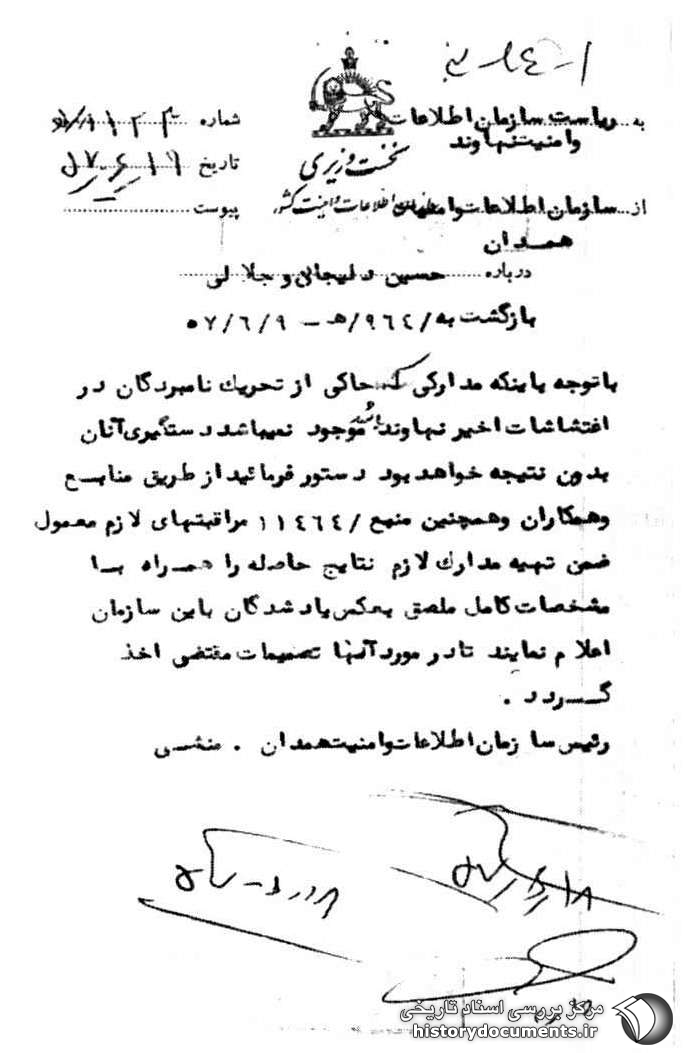 به ریاست سازمان اطلاعات
وامنیت نهاوند
شماره
نخست وزیری
تاریخ ۵۷٫۶٫۱۹
سازمان اطلاعات و امنیت کشور
از سازمان اطلاعات وامنیت
پیوست
همدان
درباره حسین دلیجانی وجلالی
بازگشت به /۹٦٤ه‍ – ۵۷/٦/۹
باتوجه باینکه مدارکی که حاکی از تحریك نامبردگان در
اغتشاشات اخیر نهاوند باشد موجود نمیباشد دستگیری آنان
بدون نتیجه خواهد بود دستور فرمائید از طریق منابع
وهمکاران وهمچنین منبع /۱۱٤٦٤ مراقبتهای لازم معمول
ضمن تهیه مدارك لازم نتایج حاصله را همراه با
مشخصات کامل ملصق بعکس یاد شدگان باین سازمان
اعلام نمایند تا در مورد آنها تصمیمات مقتضی اخذ
گردد .
رئیس سازمان اطلاعات وامنیت همدان . منشی
مرکز بررسی اسناد تاریخی
historydocuments.ir